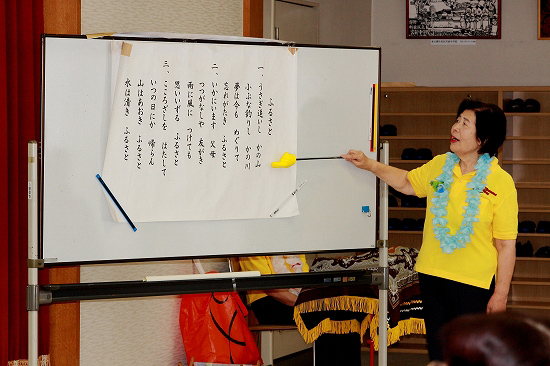 ふるさと
一、うさぎ追いし かの山
小ぶな釣りし かの川
夢は今も めぐりて
忘れがたき ふるさと
二、いかにいます 父母
つつがなしや 友がき
雨に風に つけても
思いいずる ふるさと
三、こころざしを はたして
いつの日にか 帰らん
山はあおき ふるさと
水は清き ふるさと